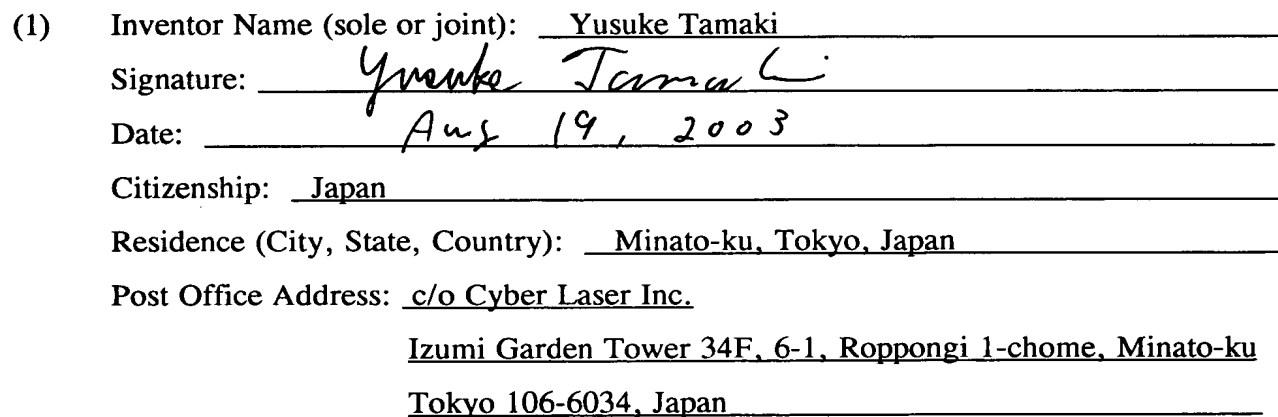 (1) Inventor Name (sole or joint): Yusuke Tamaki
Signature: Yusuke Tamaki
Date: Aug 19, 2003
Citizenship: Japan
Residence (City, State, Country): Minato-ku, Tokyo, Japan
Post Office Address: c/o Cyber Laser Inc.
Izumi Garden Tower 34F, 6-1, Roppongi 1-chome, Minato-ku
Tokyo 106-6034, Japan